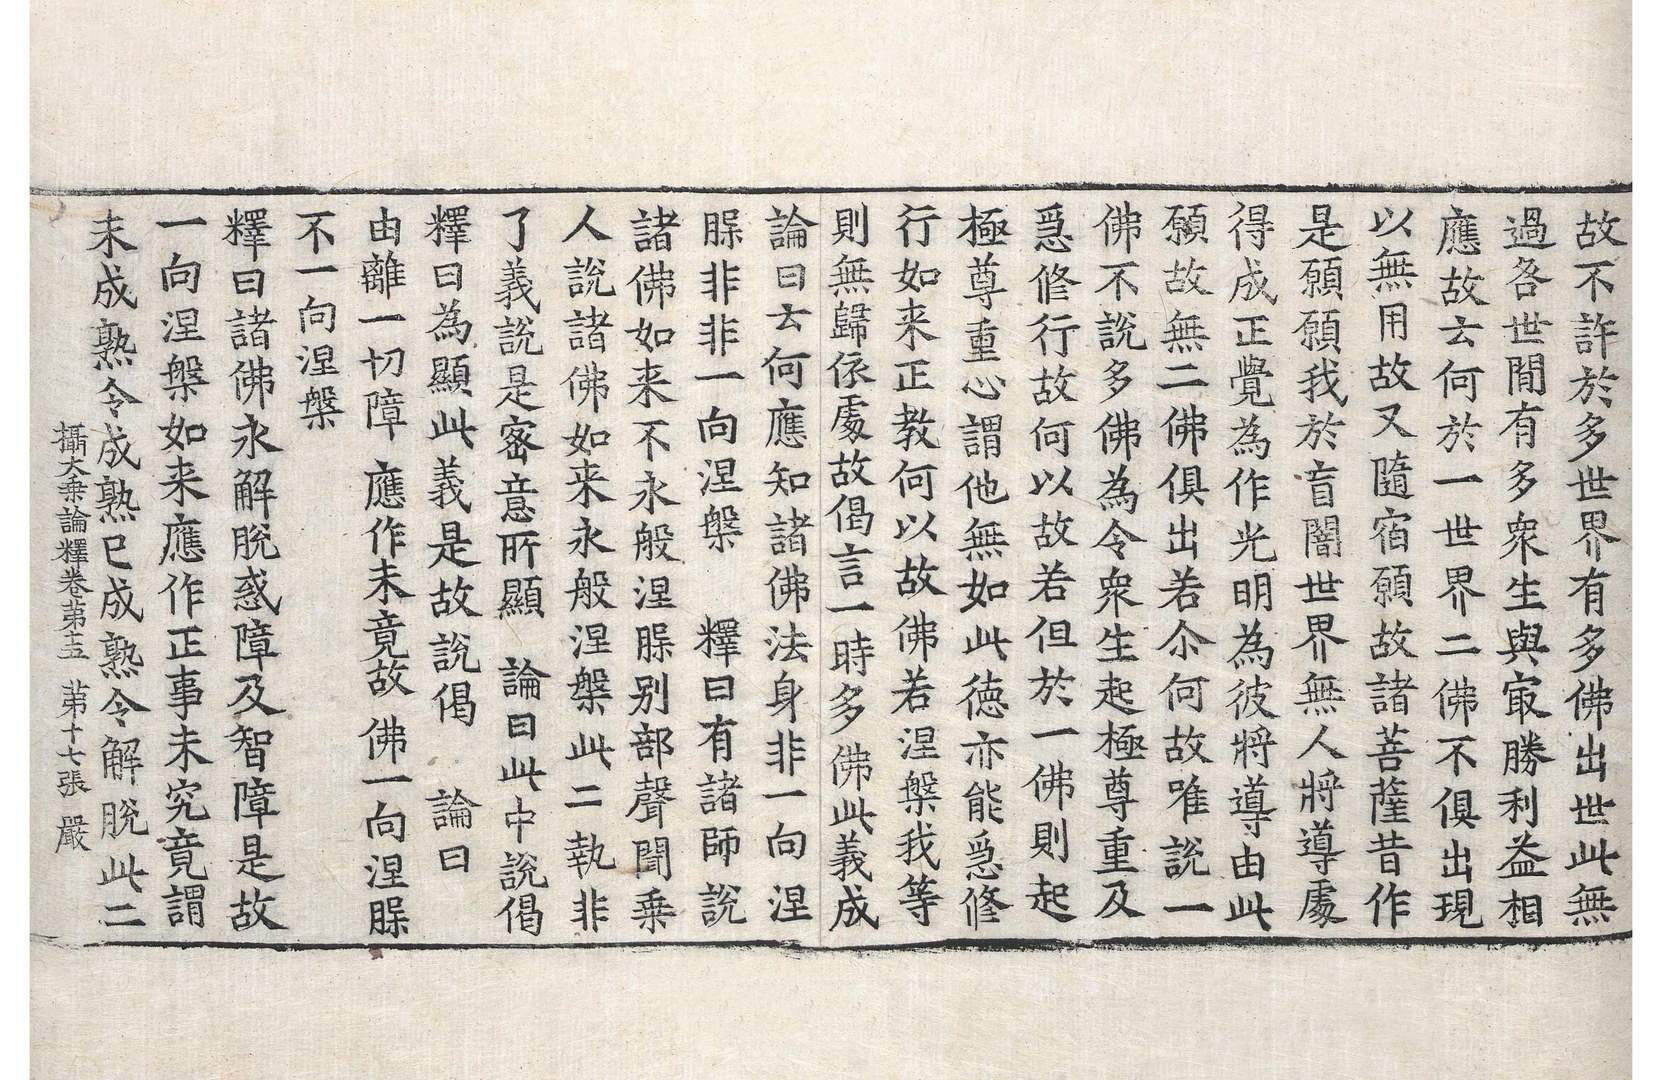 故不許於多世界有多佛出世此無
過各世間有多衆生與㝡勝利益相
應故云何於一世界二佛不俱出現
以無用故又隨宿願故諸菩薩昔作
是願願我於盲闇世界無人將導處
得成正覺為作光明為彼將導由此
願故無二佛俱出若尒何故唯説一
佛不説多佛為令衆生起極尊重及
爲修行故何以故若但於一佛則起
極尊重心謂他無如此德亦能爲修
行如来正教何以故佛若涅槃我等
則無歸依處故偈言一時多佛此義成
論曰云何應知諸佛法身非一向涅
槃非非一向涅槃　釋曰有諸師説
諸佛如来不永般涅槃别部聲聞乗
人説諸佛如来永般涅槃此二執非
了義説是密意所顯　論曰此中説偈
釋曰為顯此義是故説偈　論曰
由離一切障　應作未竟故　佛一向涅槃
不一向涅槃
釋曰諸佛永解脫惑障及智障是故
一向涅槃如来應作正事未究竟謂
未成熟令成熟已成熟令解脫此二
攝大乗論釋卷第十五　第十七張　嚴